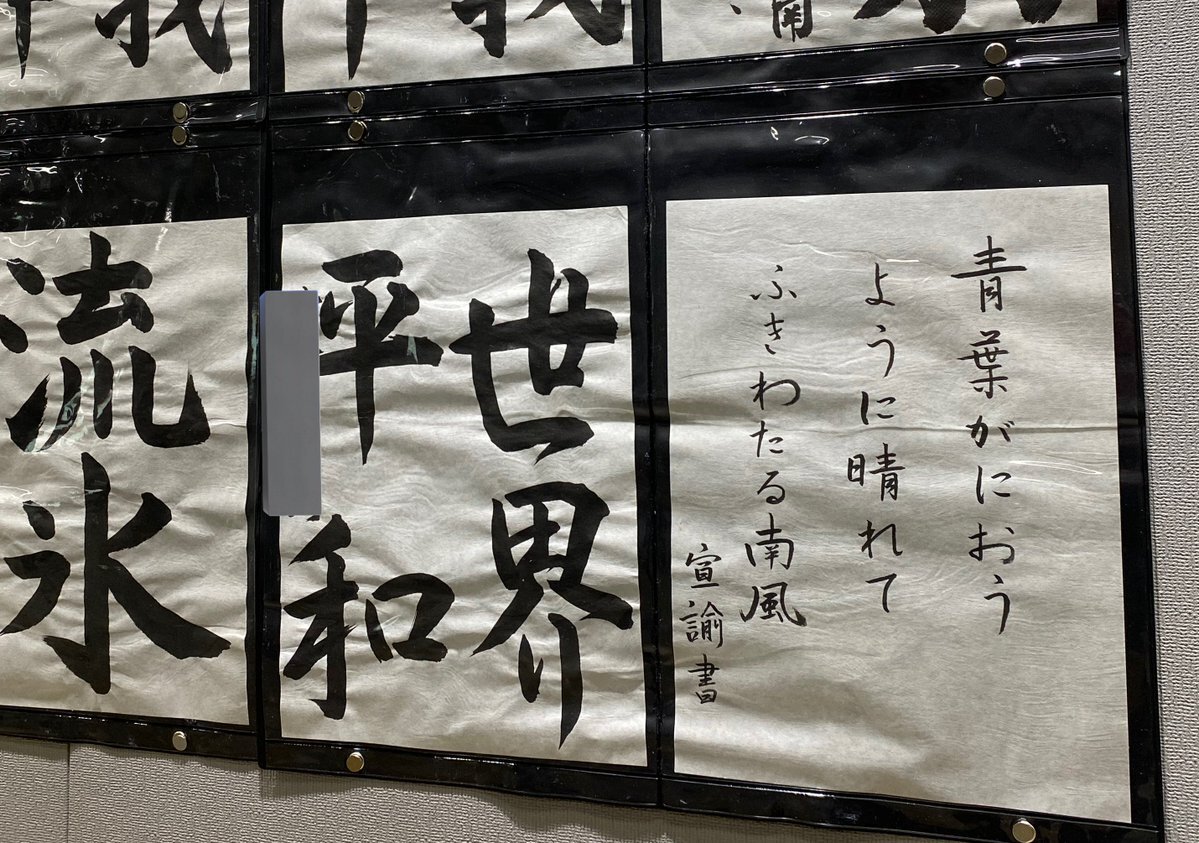 青葉がにおう
ように晴れて
ふきわたる南風
宣諭書
世界
平和
流氷